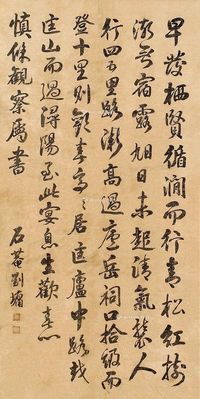 早發栖賢循澗而行青松紅樹
宿露旭日未起清氣襲人
行四五里路漸高過廬岳祠口拾級而
登十里則居匡廬中路
匡山而過潯陽至此宴息生歡喜心
慎觀察屬書
石菴劉墉